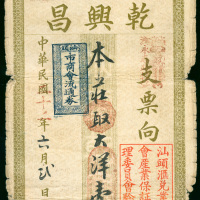 乾興昌
支票向
汕頭
市商會流通券
本莊取大洋壹
中華民國十 年六月 日
汕頭滙兌業
會產業保証
理委員會幹